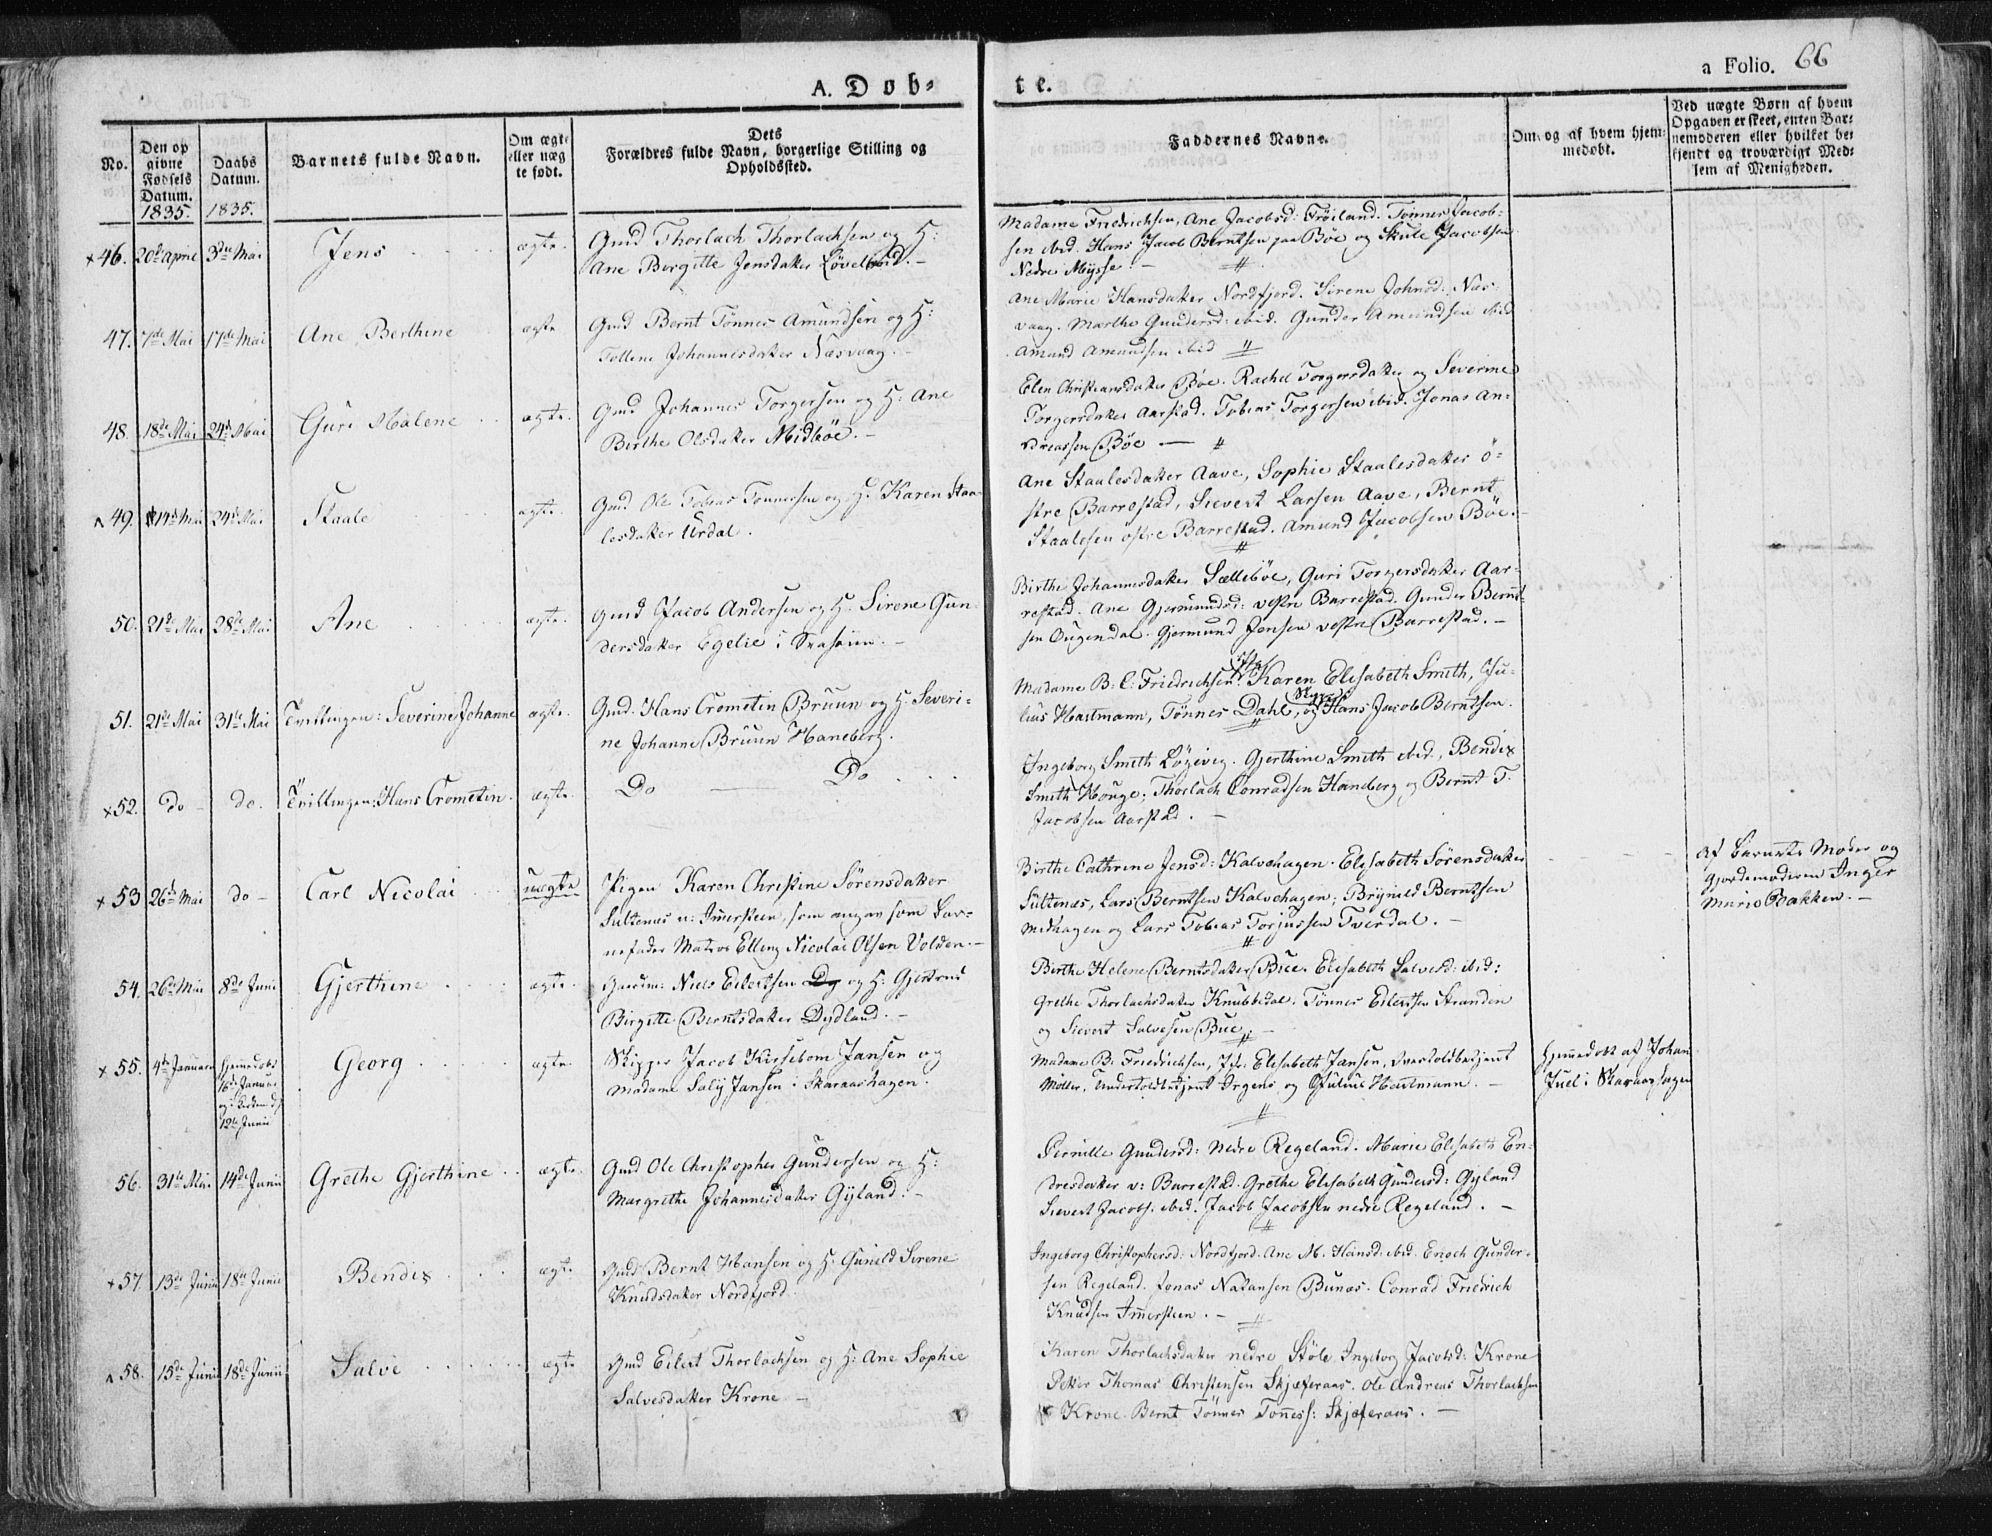 A. Døb-
te.
a Folio. 66
No.
Den op
givne
Fødsels
Datum.
1835.
Daabs
Datum.
1835.
Barnets fulde Navn.
Om ægte
eller uæg
te født.
Dets
Forældres fulde Navn, borgerlige Stilling og
Opholdssted.
Faddernes Navne.
Om og af hvem hjem-
medøbt.
Ved uægte Børn af hvem
Opgaven er skeet, enten Bar-
nemoderen eller hvilket be-
kjendt og troværdigt Med-
lem af Menigheden.
x46. 20de April 3die Mai Jens ægte.
Gmd Thorlach Thorlachsen og H:
Ane Bergitte Jensdatter
Madame Friedrichsen, Ane Jacobsd: Frøiland. Tønnes Jacob-
sen ibid. Hans Jacob Berntsen paa Bøe og Skule Jacobsen
Nedre Mysse. –
47. 7de Mai 17de Mai Ane Berthine ægte
Gmd Bernt Tønnes Amundsen og H:
Tollene Johannesdatter Næsvaag. –
Ane Marie Hansdatter Nordfjord. Sirene Johnsd: Næs-
vaag. Marthe Gundersd: ibid. Gunder Amundsen ibid
Amund Amundsen ibid
48. 18de Mai 24de Mai Guri Malene ægte.
Gmd Johannes Torgersen og H: Ane
Birthe Olsdatter Midbøe. –
Elen Christiansdatter Bøe. Rachel Torgersdatter og Severine
Torgersdatter Aarstad. Tobias Torgersen ibid. Jonas An-
dreassen Bøe
49. 14de Mai 24de Mai Staale ægte.
Gmd Ole Tobias Tønnessen og H: Karen Staa-
lesdatter Urdal.
Ane Staalesdatter Aave, Sophie Staalesdatter ø-
stre Barrestad, Sievert Larsen Aave, Bernt
Staalesen østre Barrestad. Amund Jacobsen Bøe. –
50. 21de Mai 28de Mai Ane ægte.
Gmd Jacob Andersen og H: Sirene Gun-
dersdatter Egelie i
Birthe Johannesdatter Sællebøe, Guri Torgersdatter Aar-
restad. Ane Gjermundsd: vestre Barrestad. Gunder Bernt-
sen Ougendal. Gjermund Jensen vestre Barrestad. –
51. 21de Mai 31te Mai Tvillingen: Severine Johanne ægte.
Gmd: Hans Crometin Bruun og H: Severi-
ne Johanne Bruun Haneberg.
Madame B: C: Friedrichsen. Jfr Karen Elisabeth Smith, Ju-
lius Hartmann, Tønnes Dahl, og Hans Jacob Berntsen.
x52. do – do. Tvillingen: Hans Crometin. ægte.
Do Do
Ingeborg Smith Løgivig. Gjerthine Smith ibid., Bendix
Smith Houge; Thorlach Conradsen Haneberg og Bernt T.
Jacobsen Aarstad. –
x53 26de Mai do – Carl Nicolai uægte
Pigen Karen Christine Sørensdatter
Sultenæs u: Immersteen, som angav som Bar-
nefader Matros Elling Nicolai Olsen Volden. –
Birthe Cathrine Jensd: Kalvehagen. Elisabeth Sørensdatter
Sultenæs, Lars Berntsen Kalvehagen; Brynild Berntsen
Midhagen og Lars Tobias Torjussen Tverdal. –
Af Barnets Moder og
Gjordemoderen Inger
Marie Bakken. –
54. 26de Mai 8de Juni Gjerthine ægte.
Niels Eilertsen og H: Gjertrud
Birgitte Berntsdatter Dydland. –
Birthe Helene Berntsdatter Bue. Elisabeth Salvesd: ibid:
Grethe Thorlachsdatter Knubbedal. Tønnes Eilertsen Stranden
og Sievert Salvesen Bue. –
x55. 4de Januar Hjemmedøbt
16de Januar
og i Kirken d:
12te Junii
Georg ægte.
Skipper Jacob Kirsebom Jansen og
Madame Saly Jansen i Skaraashagen.
Madame B: Friedrichsen, Jfr: Elisabeth Jansen, Overtoldbetjent
Møller, Undertoldbetjent Irgens og Julius Hartmann. –
Hjemmedøbt af Johan
Juel i Skaraashagen
56. 31te Mai 14de Junii Grethe Gjerthine ægte.
Gmd Ole Christopher Gundersen og H:
Margrethe Johannesdatter Gyland. –
Pernille Gundersd: nedre Regeland. Marie Elisabeth En-
dresdatter v: Barrestad. Grethe Elisabeth Gundersd: Gyland
Sievert Jacobs. ibid. Jacob Jacobsen nedre Regeland. –
x57 13de Junii 18de Junii Bendix ægte.
Gmd Bernt Hansen og H: Gunild Sirene
Knudsdatter Nordfjord.
Ingeborg Christophersd: Nordfjord. Ane M. Hansd: ibid. Enoch Gunder-
sen Regeland. Jonas Natansen Bunæs. Conrad Friedrich
Knudsen Immersteen. –
58. 15de Junii 18de Junii Salve ægte
Gmd Eilert Thorlachsen og H: Ane Sophie
Salvesdatter Krone –
Karen Thorlachsdatter nedre Støle Ingeborg Jacobsd: Krone
Petter Thomas Christensen Skjæferaas. Ole Andreas Thorlachsen
Krone. Bernt Tønnes Tønness: Skjæferaas. –